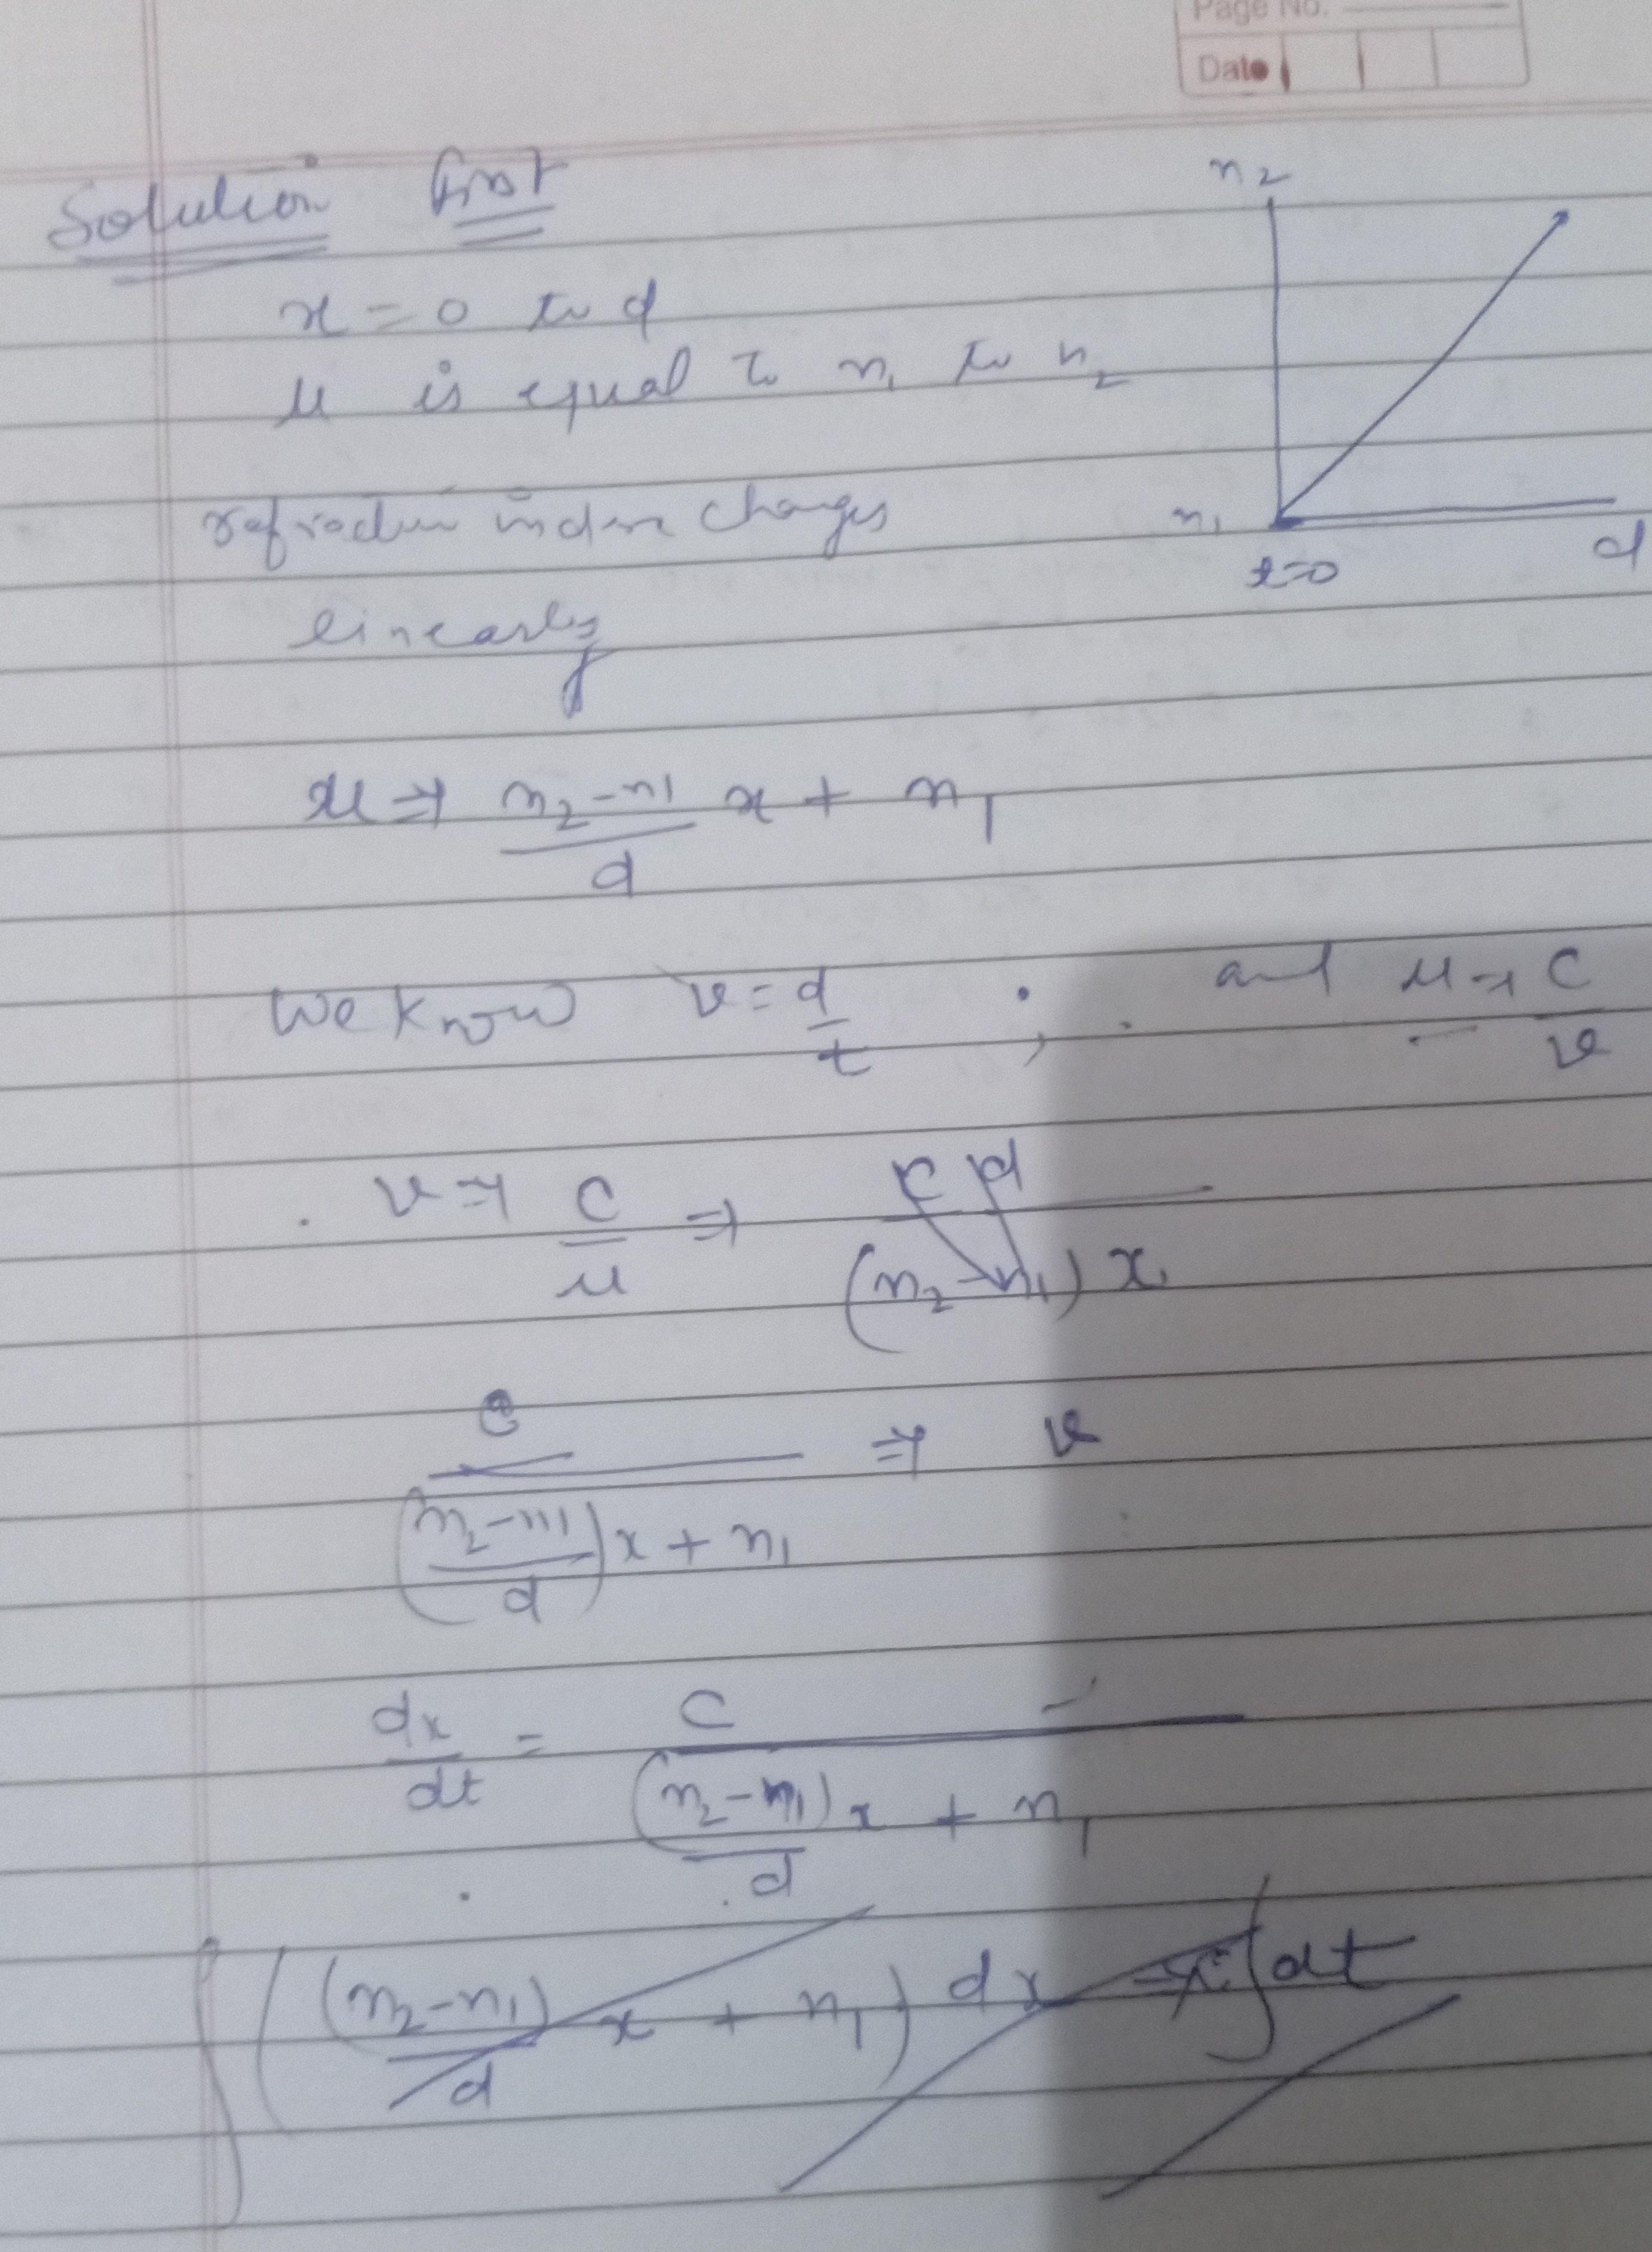 Page No.
Date
Solution first
x = 0 to d
μ is equal to n₁ to n₂
refractive index changes
linearly
n₂
n₁
x=0
d
μ ⇒ (n₂-n₁)/d x + n₁
We know v = d/t ; and μ → c/v
v ⇒ c/μ ⇒ cd/(n₂-n₁)x
c/((n₂-n₁)/d)x + n₁ ⇒ v
dx/dt = c/((n₂-n₁)/d)x + n₁
∫((n₂-n₁)/d x + n₁) dx = c∫dt